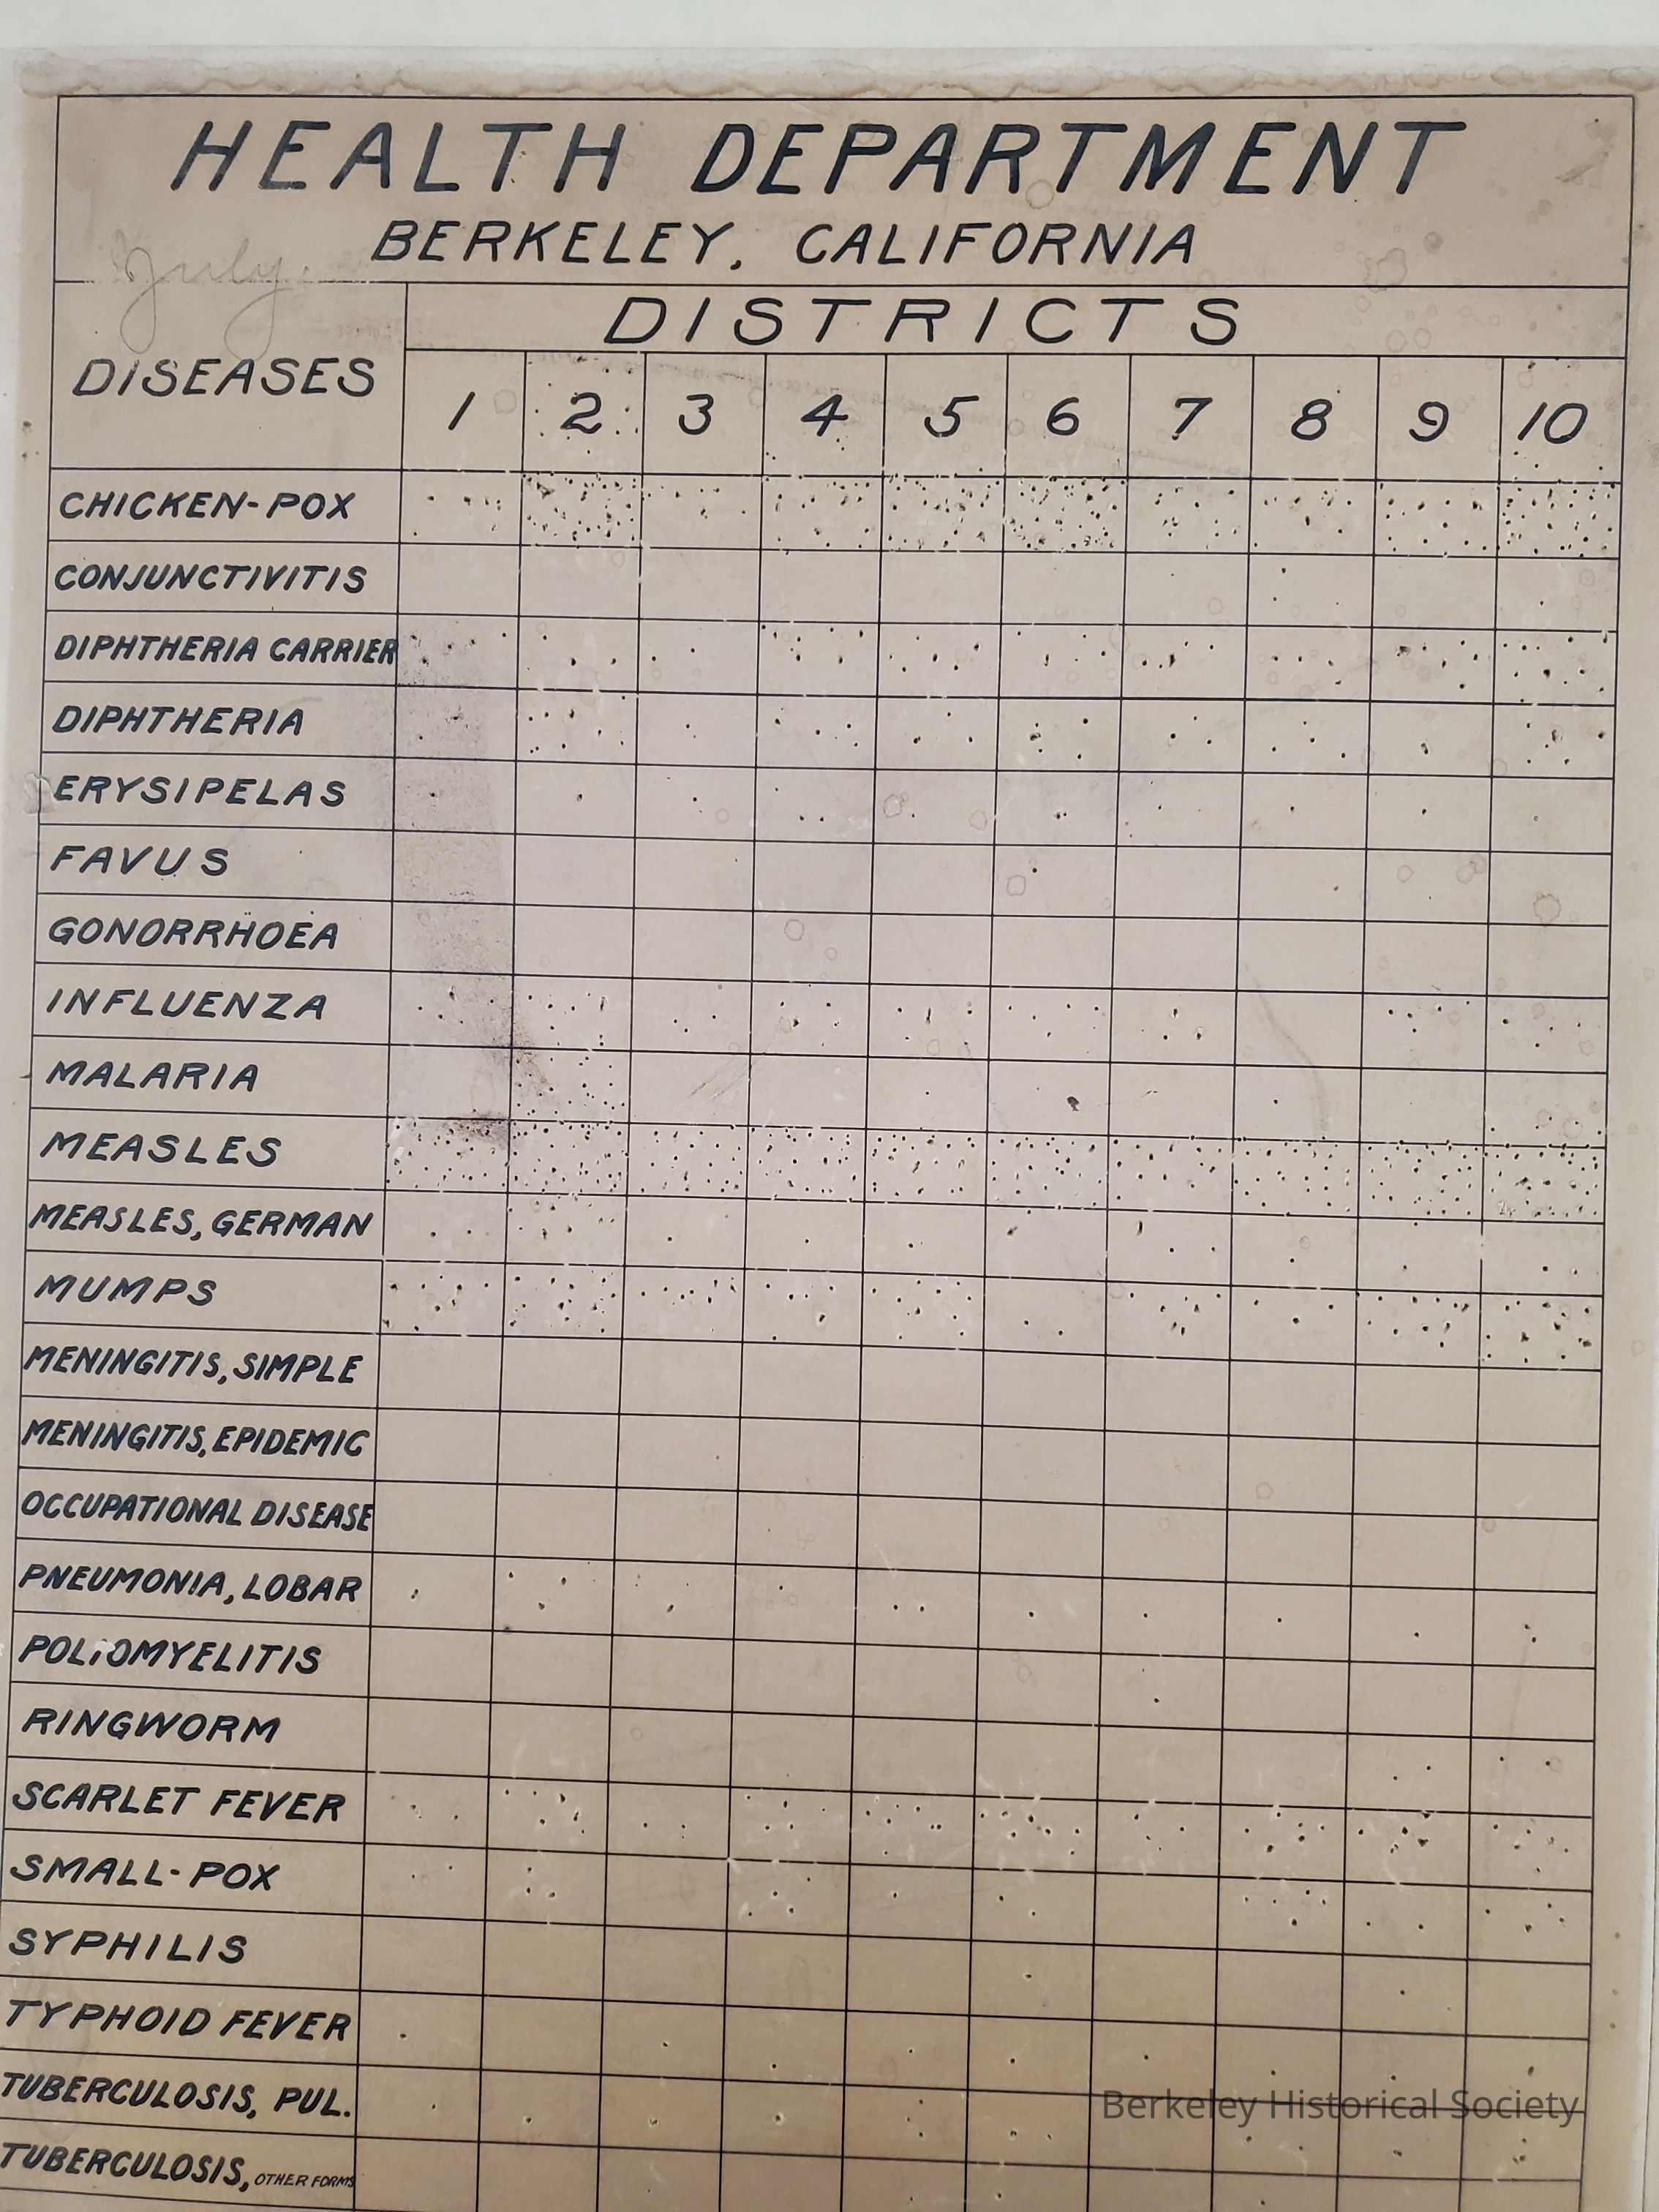 HEALTH DEPARTMENT
BERKELEY, CALIFORNIA
July.
DISTRICTS
DISEASES
1 2 3 4 5 6 7 8 9 10
CHICKEN-POX
CONJUNCTIVITIS
DIPHTHERIA CARRIER
DIPHTHERIA
ERYSIPELAS
FAVUS
GONORRHOEA
INFLUENZA
MALARIA
MEASLES
MEASLES, GERMAN
MUMPS
MENINGITIS, SIMPLE
MENINGITIS, EPIDEMIC
OCCUPATIONAL DISEASE
PNEUMONIA, LOBAR
POLIOMYELITIS
RINGWORM
SCARLET FEVER
SMALL-POX
SYPHILIS
TYPHOID FEVER
TUBERCULOSIS, PUL.
TUBERCULOSIS, OTHER FORMS
Berkeley Historical Society